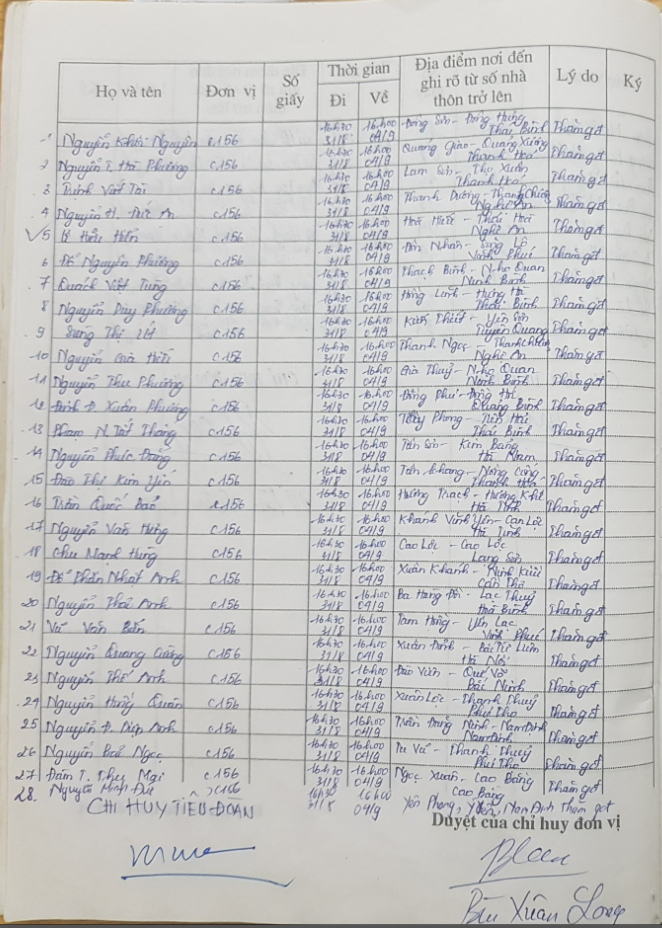 Họ và tên Đơn vị Số giấy Thời gian Đi Về Địa điểm nơi đến ghi rõ từ số nhà thôn trở lên Lý do Ký
1 Nguyễn Khôi Nguyên c156 16h30 31/8 16h00 04/9 Đông Sơn - Đông Hưng Thái Bình Thăm gđ
2 Nguyễn T. Hà Phương c156 16h30 31/8 16h00 04/9 Quảng Giao - Quảng Xương Thanh Hoá Thăm gđ
3 Trịnh Viết Tài c156 16h30 31/8 16h00 04/9 Lam Sơn - Thọ Xuân Thanh Hoá Thăm gđ
4 Nguyễn H. Đức An c156 16h30 31/8 16h00 04/9 Thanh Dương - Thanh Chương Nghệ An Thăm gđ
5 Lê Hữu Hiển c156 16h30 31/8 16h00 04/9 Thái Hoà Nghệ An Thăm gđ
6 Đỗ Nguyên Phương c156 16h30 31/8 16h00 04/9 Đôn Nhân - Sông Lô Vĩnh Phúc Thăm gđ
7 Quách Việt Tùng c156 16h30 31/8 16h00 04/9 Thạch Bình - Nho Quan Ninh Bình Thăm gđ
8 Nguyễn Duy Phương c156 16h30 31/8 16h00 04/9 Hồng Lĩnh - Hưng Hà Thái Bình Thăm gđ
9 Sùng Thị c156 16h30 31/8 16h00 04/9 Yên Sơn Tuyên Quang Thăm gđ
10 Nguyễn c156 16h30 31/8 16h00 04/9 Thanh Ngọc - Thanh Chương Nghệ An Thăm gđ
11 Nguyễn Thu Phương c156 16h30 31/8 16h00 04/9 Gia Thuỷ - Nho Quan Ninh Bình Thăm gđ
12 Đinh Đ. Xuân Phương c156 16h30 31/8 16h00 04/9 Đồng Phú - Đồng Hới Quảng Bình Thăm gđ
13 Phạm N. Tất Thắng c156 16h30 31/8 16h00 04/9 Tây Phong - Tiền Hải Thái Bình Thăm gđ
14 Nguyễn Phúc Đăng c156 16h30 31/8 16h00 04/9 Tân Sơn - Kim Bảng Hà Nam Thăm gđ
15 Đào Thị Kim Yến c156 16h30 31/8 16h00 04/9 Tân Khang - Nông Cống Thanh Hoá Thăm gđ
16 Trần Quốc Bảo c156 16h30 31/8 16h00 04/9 Hương Trạch - Hương Khê Hà Tĩnh Thăm gđ
17 Nguyễn Văn Hưng c156 16h30 31/8 16h00 04/9 Khánh Vĩnh Yên - Can Lộc Hà Tĩnh Thăm gđ
18 Chu Mạnh Hùng c156 16h30 31/8 16h00 04/9 Cao Lộc - Cao Lộc Lạng Sơn Thăm gđ
19 Đỗ Phan Nhật Anh c156 16h30 31/8 16h00 04/9 Xuân Khánh - Ninh Kiều Cần Thơ Thăm gđ
20 Nguyễn Thế Anh c156 16h30 31/8 16h00 04/9 Ba Hàng Đồi - Lạc Thuỷ Hoà Bình Thăm gđ
21 Vũ Văn c156 16h30 31/8 16h00 04/9 Tam Hồng - Yên Lạc Vĩnh Phúc Thăm gđ
22 Nguyễn Quang c156 16h30 31/8 16h00 04/9 Xuân Đỉnh - Bắc Từ Liêm Hà Nội Thăm gđ
23 Nguyễn Thế Anh c156 16h30 31/8 16h00 04/9 Đào Viên - Quế Võ Bắc Ninh Thăm gđ
24 Nguyễn Hồng Quân c156 16h30 31/8 16h00 04/9 Xuân Lộc - Thanh Thuỷ Phú Thọ Thăm gđ
25 Nguyễn Đ. Diệp Anh c156 16h30 31/8 16h00 04/9 Trần Đăng Ninh - Nam Định Nam Định Thăm gđ
26 Nguyễn Bá Ngọc c156 16h30 31/8 16h00 04/9 Tu Vũ - Thanh Thuỷ Phú Thọ Thăm gđ
27 Đàm T. Thu Mai c156 16h30 31/8 16h00 04/9 Ngọc Xuân - Cao Bằng Cao Bằng Thăm gđ
28. Nguyễn Minh Đức c156 16h30 31/8 16h00 04/9 Yên Phong, Ý Yên, Nam Định Thăm gđ
CHỈ HUY TIỂU ĐOÀN
Duyệt của chỉ huy đơn vị
Bùi Xuân Long